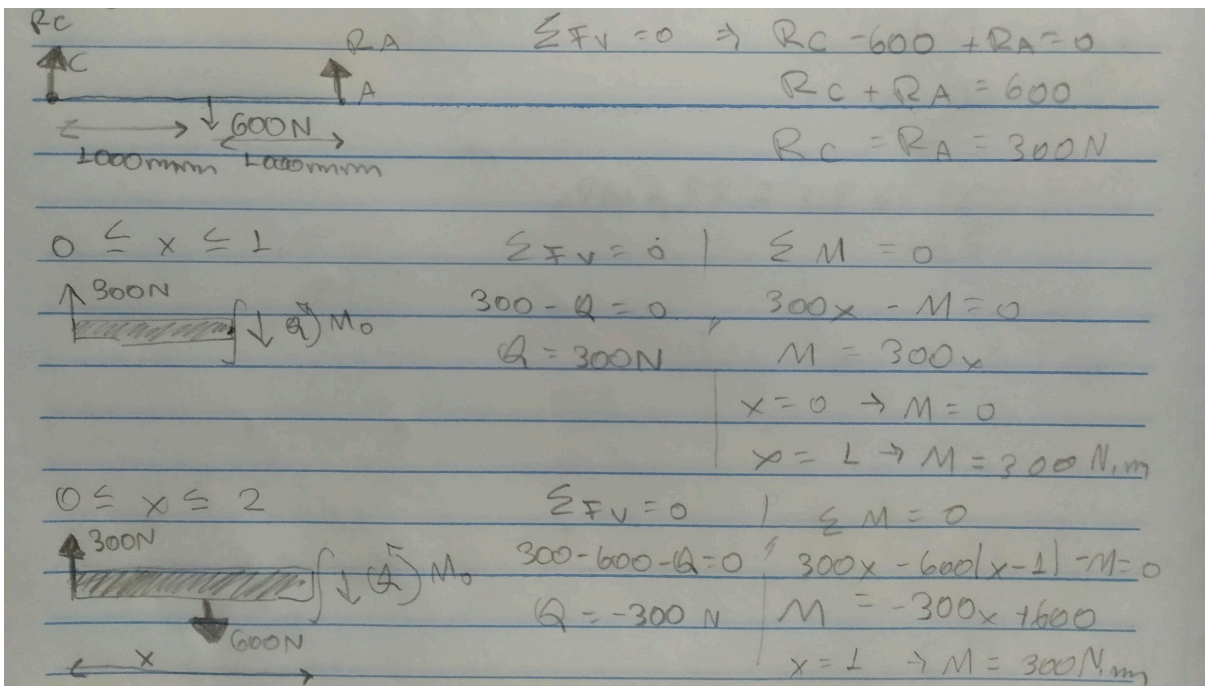 RC
C
RA
A
600N
1000mm 1000mm
ΣFv = 0 ⇒ RC - 600 + RA = 0
RC + RA = 600
RC = RA = 300N
0 ≤ x ≤ 1
300N
Q M0
ΣFv = 0
300 - Q = 0,
Q = 300N
ΣM = 0
300x - M = 0
M = 300x
x = 0 → M = 0
x = 1 → M = 300 N.m
0 ≤ x ≤ 2
300N
Q M0
600N
x
ΣFv = 0
300-600-Q=0
Q = -300 N
ΣM = 0
300x - 600(x-1) - M = 0
M = -300x + 600
x = 1 → M = 300N.m